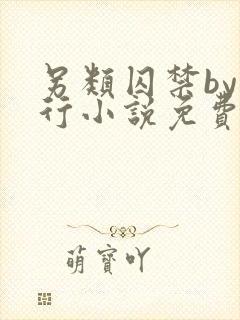 另類囚禁by
行小說免費
萌寶吖